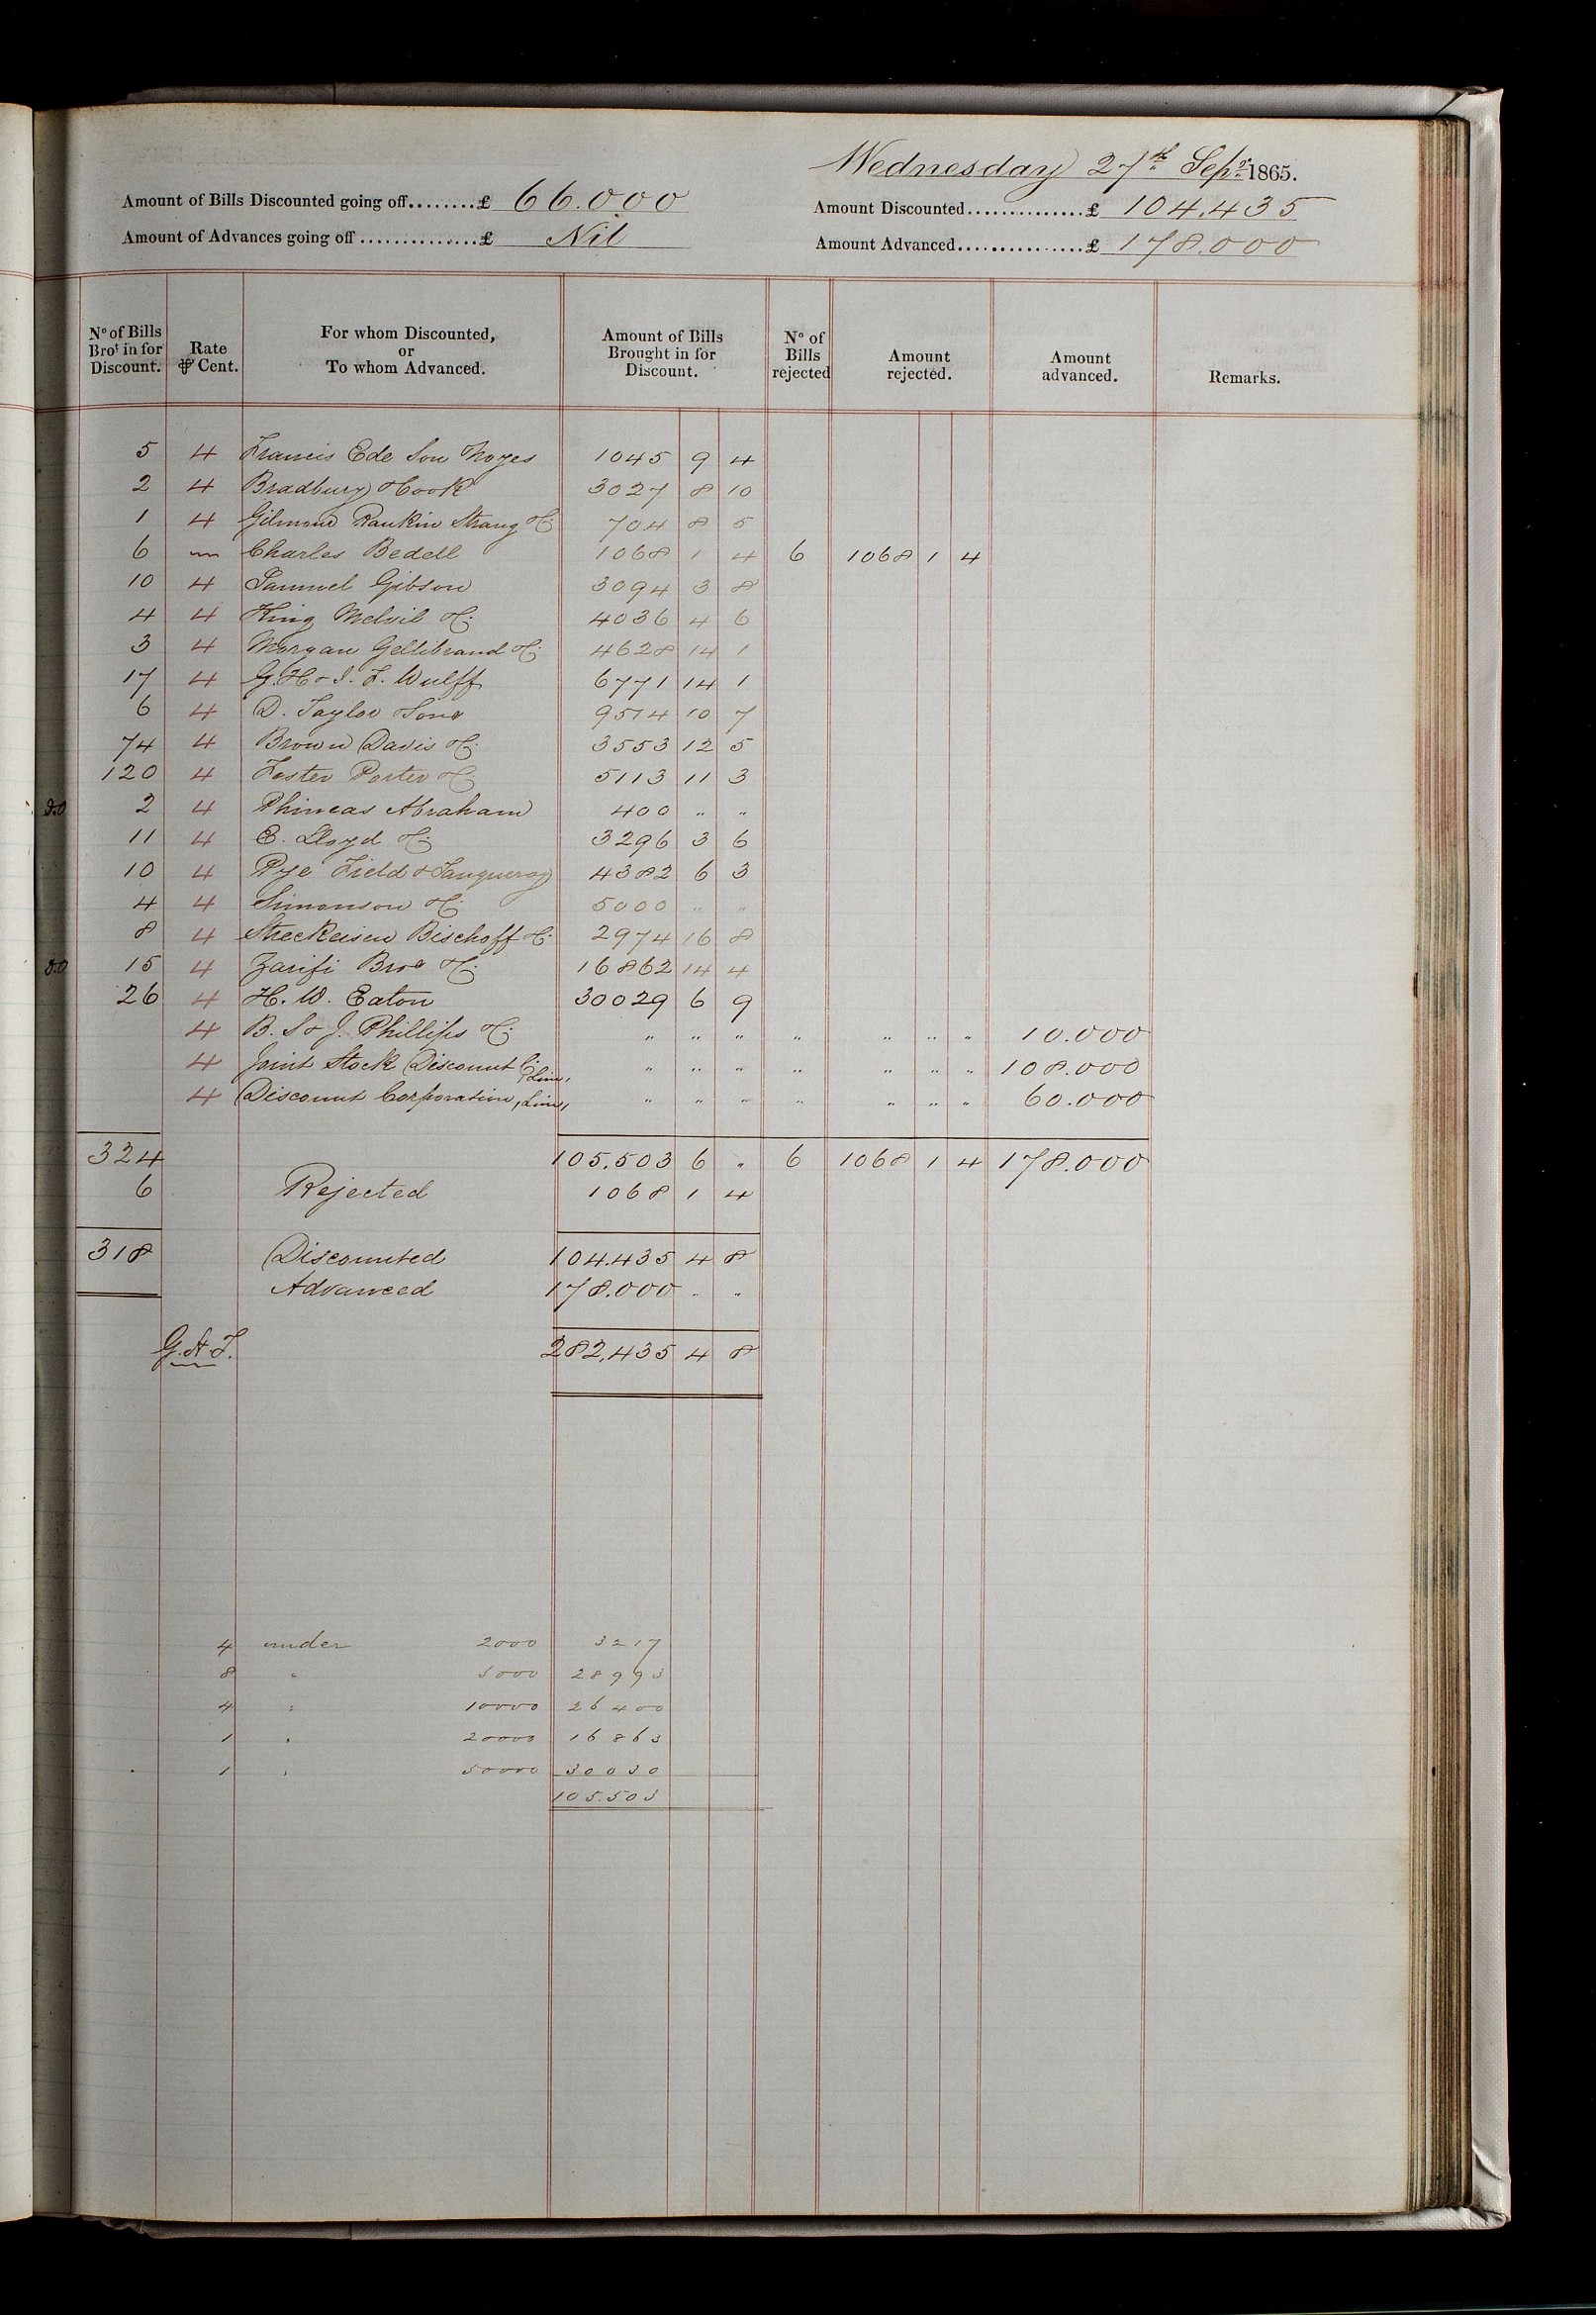 Wednesday 27th Sepr. 1865.
Amount of Bills Discounted going off........£ 66.000
Amount Discounted..............£ 104.435
Amount of Advances going off..............£ Nil
Amount Advanced................£ 178.000
No of Bills Brot in for Discount. Rate ⅌ Cent. For whom Discounted, or To whom Advanced. Amount of Bills Brought in for Discount. No of Bills rejected Amount rejected. Amount advanced. Remarks.
5 4 Francis Ede Son Noyes 1045 9 4
2 4 Bradbury & Cook 3027 8 10
1 4 Gilmour Rankin Strang & Co 704 8 5
6 Charles Bedell 1068 1 4 6 1068 1 4
10 4 Samuel Gibson 3094 3 8
4 4 King Melvil & Co 4036 4 6
3 4 Morgan Gellibrand & Co 4628 14 1
17 4 G. H & I. F. Wulff 6771 14 1
6 4 D. Taylor & Sons 9514 10 7
74 4 Brown Davis & Co 3553 12 5
120 4 Foster Porter & Co 5113 11 3
2 4 Phineas Abraham 400 " "
11 4 E. Lloyd & Co 3296 3 6
10 4 Pye Field & Tanqueray 4382 6 3
4 4 Simonson & Co 5000 " "
8 4 Streckeisen Bischoff & Co 2974 16 8
15 4 Zarifi Bros & Co 16862 14 4
26 4 H. W. Eaton 30029 6 9
4 B. S & J. Phillips & Co " " " " " " " 10.000
4 Joint Stock Discount Co, Lim, " " " " " " " 108.000
4 Discount Corporation, Lim, " " " " " " " 60.000
324 105,503 6 " 6 1068 1 4 178.000
6 Rejected 1068 1 4
318 Discounted 104.435 4 8
Advanced 178.000 " "
G.A.F. 282,435 4 8
4 under 2000 3217
8 " 5000 28993
4 " 10000 26400
1 " 20000 16863
1 " 50000 30030
105.503